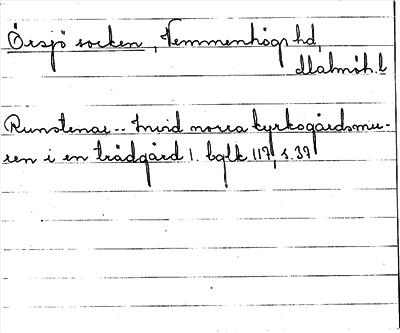 Örsjö socken, Vemmenhögs hd,
Malmöh. l
Runstenar -- Invid norra kyrkogårdsmu-
ren i en trädgård 1. bglk 117, s. 37